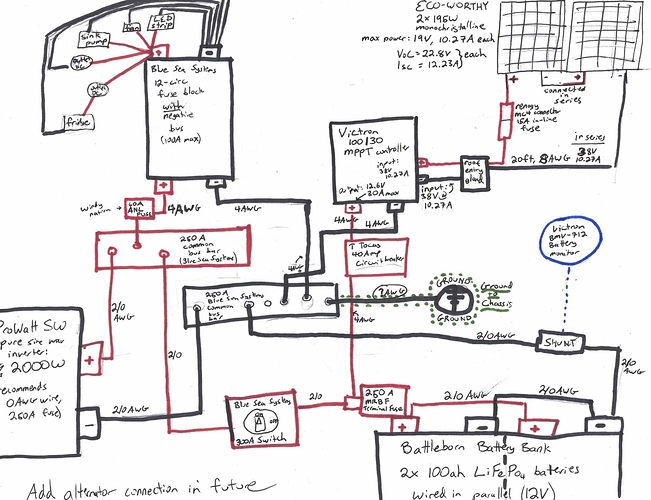 LED
strip
fan
sink
pump
fridge
Blue Sea Systems
12-circ
fuse block
with
negative
bus
(100A max)
ECO-WORTHY
2x 195W
monochristalline
max power: 19V, 10.27A each
VOC = 22.8V } each
ISC = 12.23A
connected
in series
renogy
MC4 connector
15A in-line
fuse
in series
38V
10.27A
20ft, 8AWG
roof
entry
gland
Victron
100/30
MPPT controller
input:
38V
10.27A
output: 12.6V
30A max
input:
38V @
10.27A
windy
nation
60A
ANL
FUSE
4AWG
4AWG
4AWG
4AWG
Tocas
40Amp
Circuit breaker
4AWG
250 A
common
bus bar
(Blue Sea Systems)
250A
Blue Sea Systems
common
bus
bar
GROUND
GROUND
Ground
to
Chassis
Victron
BMV-712
Battery
monitor
SHUNT
2/0 AWG
2/0
AWG
2/0
AWG
2/0
4AWG
ProWatt SW
pure sine wav
inverter:
2000W
recommends
0AWG wire,
250A fuse)
2/0 AWG
Blue Sea Systems
ON
OFF
300A Switch
2/0
250 A
MRBF
Terminal Fuse
2/0 AWG
2/0 AWG
Battleborn Battery Bank
2x 100ah LiFePO4 batteries
wired in parallel (12V)
Add alternator connection in future